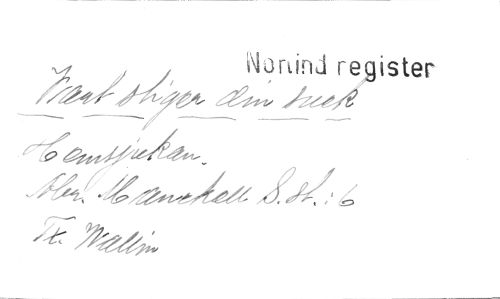 Norlind register
Vart stiger din suck
Hemsjukan.
Abr. Mankell S. st. : 6
Tx. Wallin